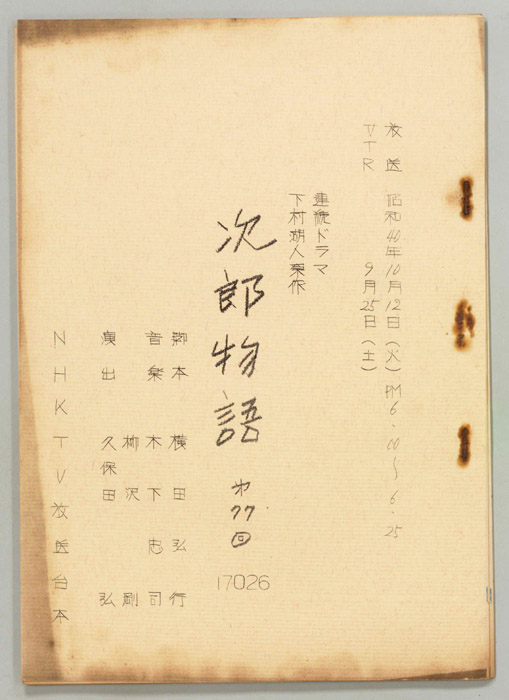 放送 昭和40年10月12日（火）PM6.00～6.25
VTR 9月25日（土）
連続ドラマ
下村湖人原作
次郎物語 第77回
17026
脚本 横田弘行
音楽 木下忠司
柳沢剛
演出 久保田弘
NHKTV放送台本